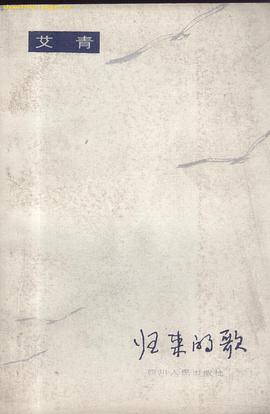 艾青
归来的歌
四川人民出版社